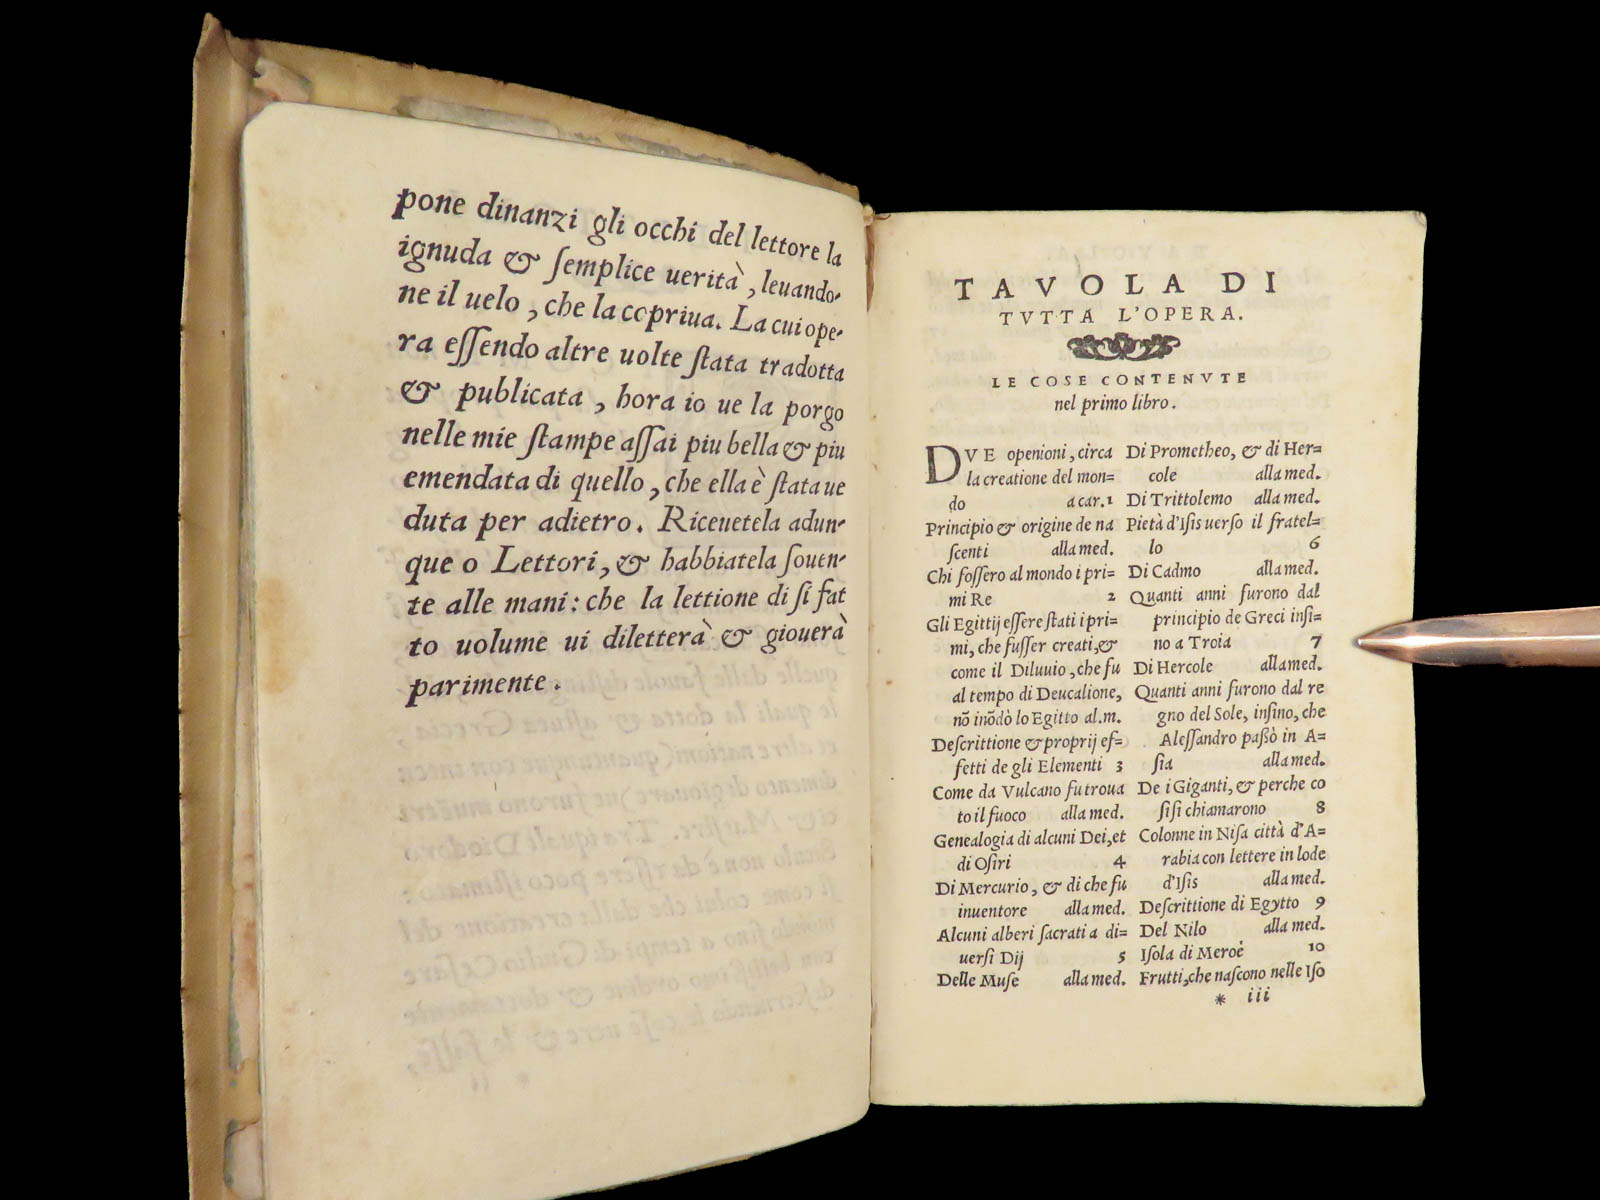 pone dinanzi gli occhi del lettore la
ignuda & ſemplice uerità, leuando-
ne il uelo, che la copriua. La cui ope-
ra eſſendo altre uolte ſtata tradotta
& publicata, hora io ue la porgo
nelle mie ſtampe aſſai piu bella & piu
emendata di quello, che ella è ſtata ue
duta per adietro. Riceuetela adun-
que o Lettori, & habbiatela ſouen-
te alle mani: che la lettione di ſi fat
to uolume ui diletterà & giouerà
parimente.
TAVOLA DI
TVTTA L'OPERA.
LE COSE CONTENVTE
nel primo libro.
DVE openioni, circa
la creatione del mon=
do a car. 1
Principio & origine de na
ſcenti alla med.
Chi foſſero al mondo i pri=
mi Re 2
Gli Egittij eſſere ſtati i pri=
mi, che fuſſer creati, &
come il Diluuio, che fu
al tempo di Deucalione,
nō inōdò lo Egitto al.m.
Deſcrittione & proprij ef=
fetti de gli Elementi 3
Come da Vulcano fu troua
to il fuoco alla med.
Genealogia di alcuni Dei, et
di Oſiri 4
Di Mercurio, & di che fu
inuentore alla med.
Alcuni alberi ſacrati a di=
uerſi Dij 5
Delle Muſe alla med.
Di Prometheo, & di Her=
cole alla med.
Di Trittolemo alla med.
Pietà d'Iſis uerſo il fratel=
lo 6
Di Cadmo alla med.
Quanti anni furono dal
principio de Greci inſi=
no a Troia 7
Di Hercole alla med.
Quanti anni furono dal re
gno del Sole, inſino, che
Aleſſandro paßò in A=
ſia alla med.
De i Giganti, & perche co
ſi ſi chiamarono 8
Colonne in Niſa città d'A=
rabia con lettere in lode
d'Iſis alla med.
Deſcrittione di Egytto 9
Del Nilo alla med.
Iſola di Meroè 10
Frutti, che naſcono nelle Iſo
* iii